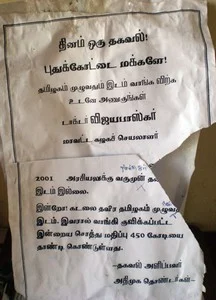 தினம் ஒரு தகவல்!
புதுக்கோட்டை மக்களே!
தமிழகம் முழுவதும் இடம் வாங்க விற்க
உடனே அணுகுங்கள்
டாக்டர் விஜயபாஸ்கர்
மாவட்ட கழகச் செயலாளர்
2001 அரசியலுக்கு வருமுன்
இடம் இல்லை.
இன்றோ! கடலை தவிர தமிழகம் முழுவ
இடம். இவரால் வாங்கி குவிக்கப்பட்ட
இன்றைய சொத்து மதிப்பு 450 கோடியை
தாண்டி கொண்டுள்ளது.
-தகவல் அளிப்பவர்
அதிமுக தொண்டர்கள்-